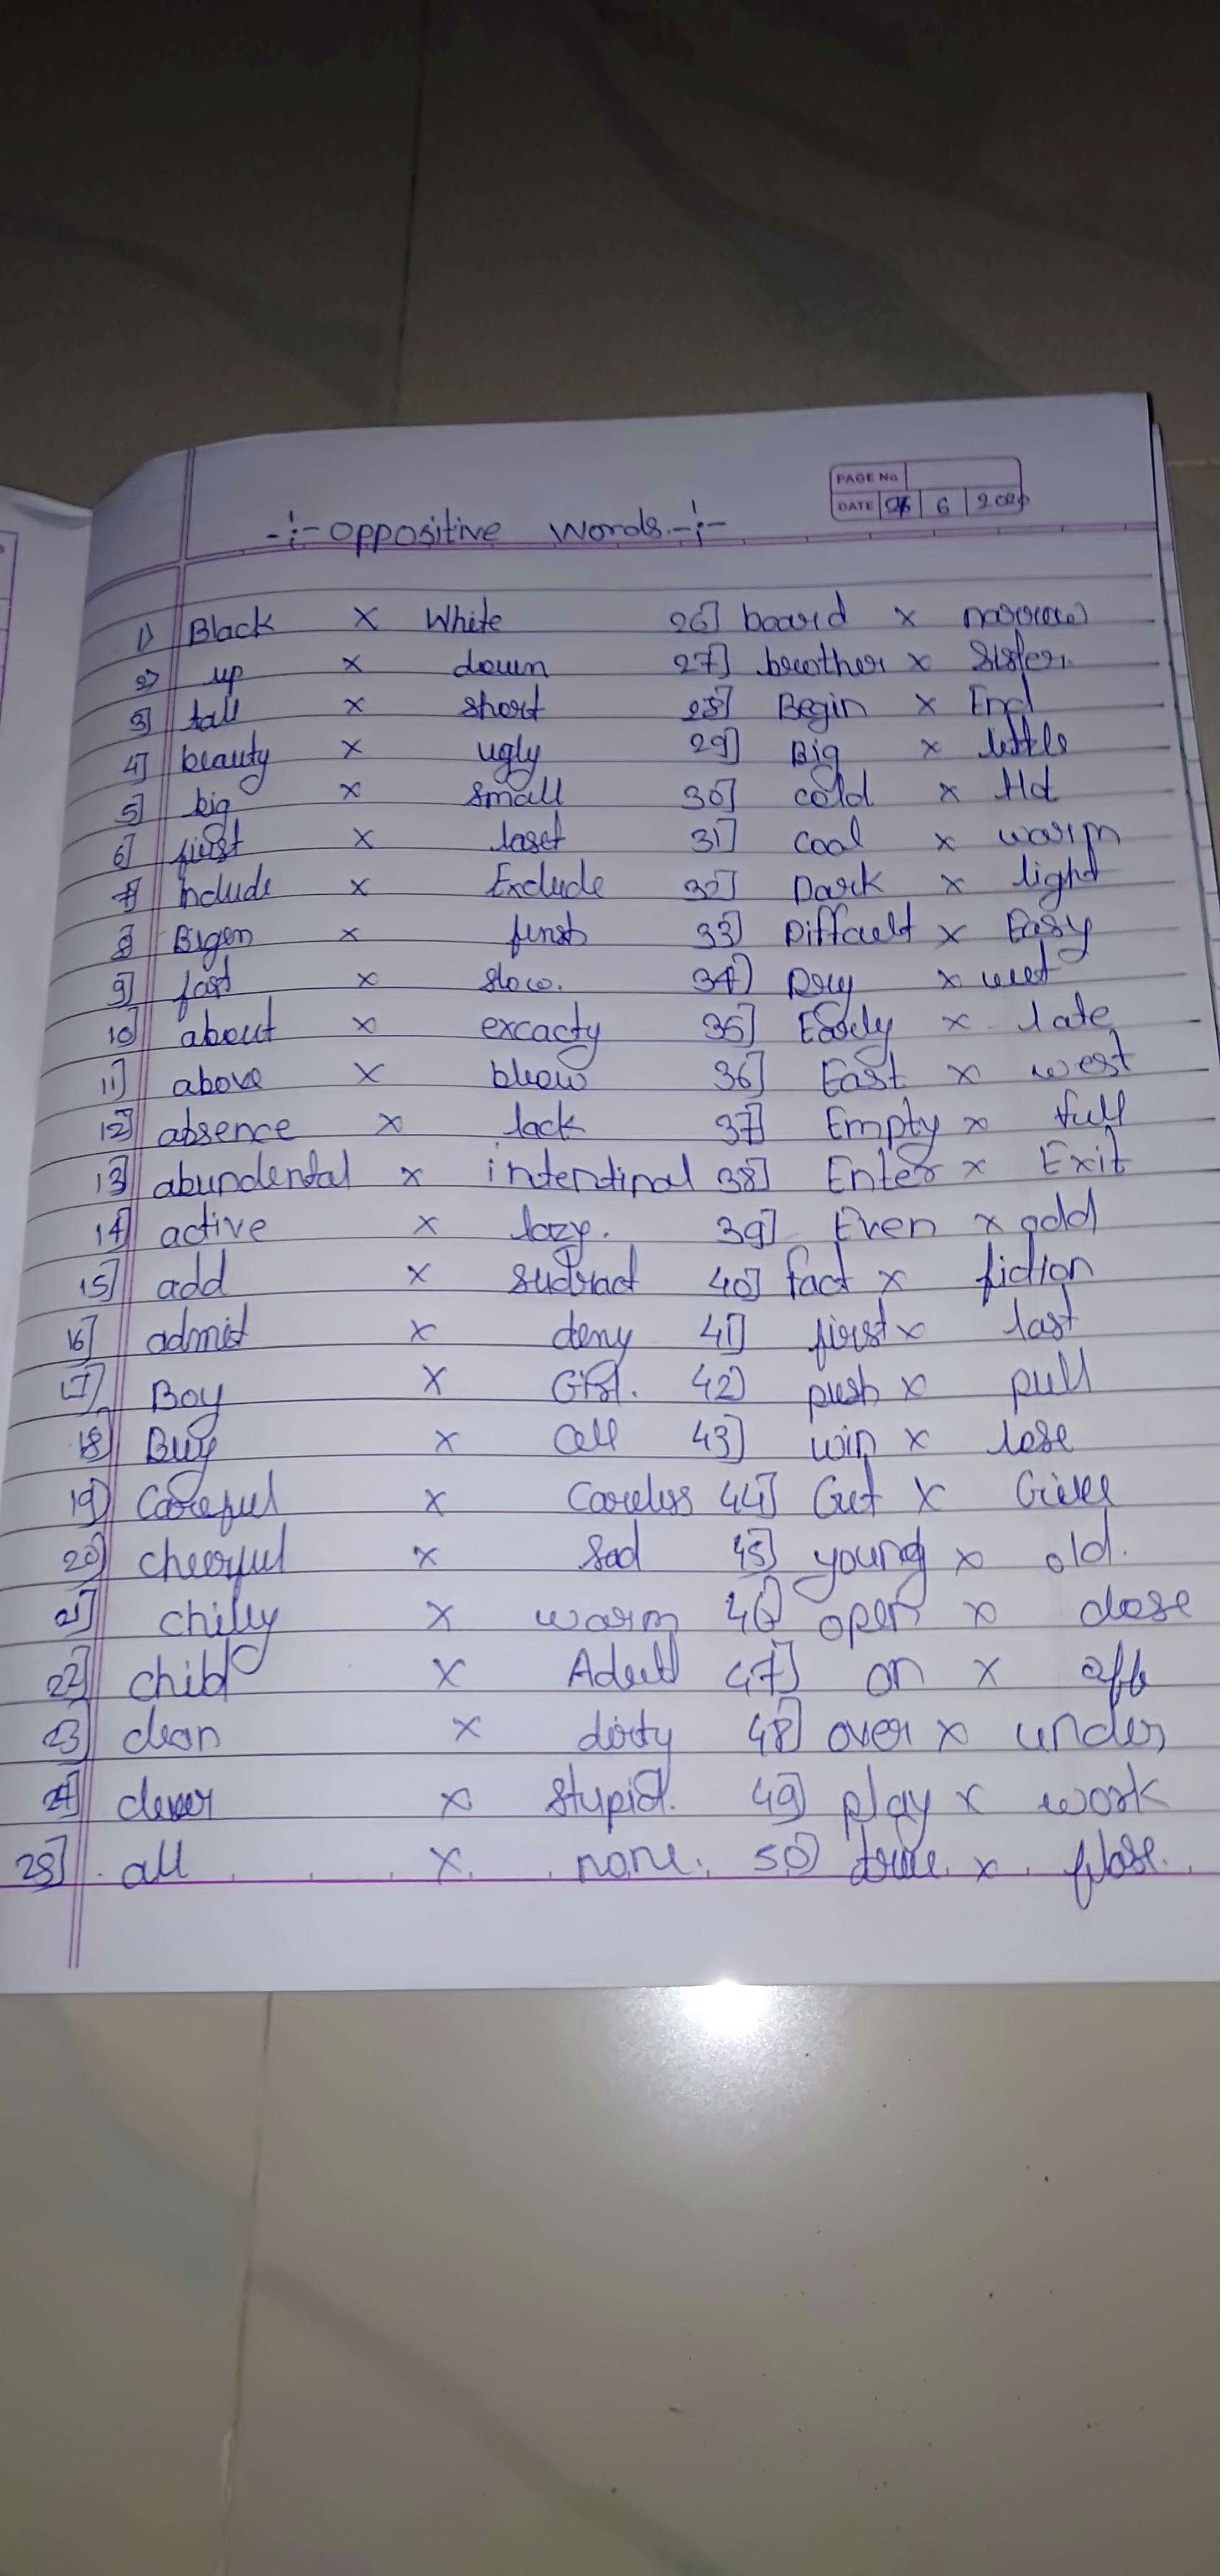 PAGE No
DATE 6
-:- oppositive words. -:-
1) Black x White 26] board x narrow
2) up x down 27] brother x Sister.
3] tall x short 28] Begin x End
4] beauty x ugly 29] Big x little
5] big x small 30] cold x Hot
6] first x laset 31] cool x warm
7] include x Exclude 32] Dark x light
8] Bigen x finsh 33] Difficult x Easy
9] fast x slow. 34] Dry x wet
10] about x excacty 35] Early x late
11] above x bleow 36] East x west
12] absence x lack 37] Empty x full
13] abundental x intentinal 38] Enter x Exit
14] active x lazy. 39] Even x odd
15] add x sudtract 40] fact x fiction
16] admit x deny 41] first x last
17] Boy x Girl. 42] push x pull
18] Buy x 43] win x lose
19] Careful x Careless 44] Get x
20] cheerful x sad 45] young x old.
21] chilly x warm 46] open x close
22] child x Adult 47] on x off
23] clean x dirty 48] over x under
24] clever x stupid. 49] play x work
25] all x none. 50] true x flase.